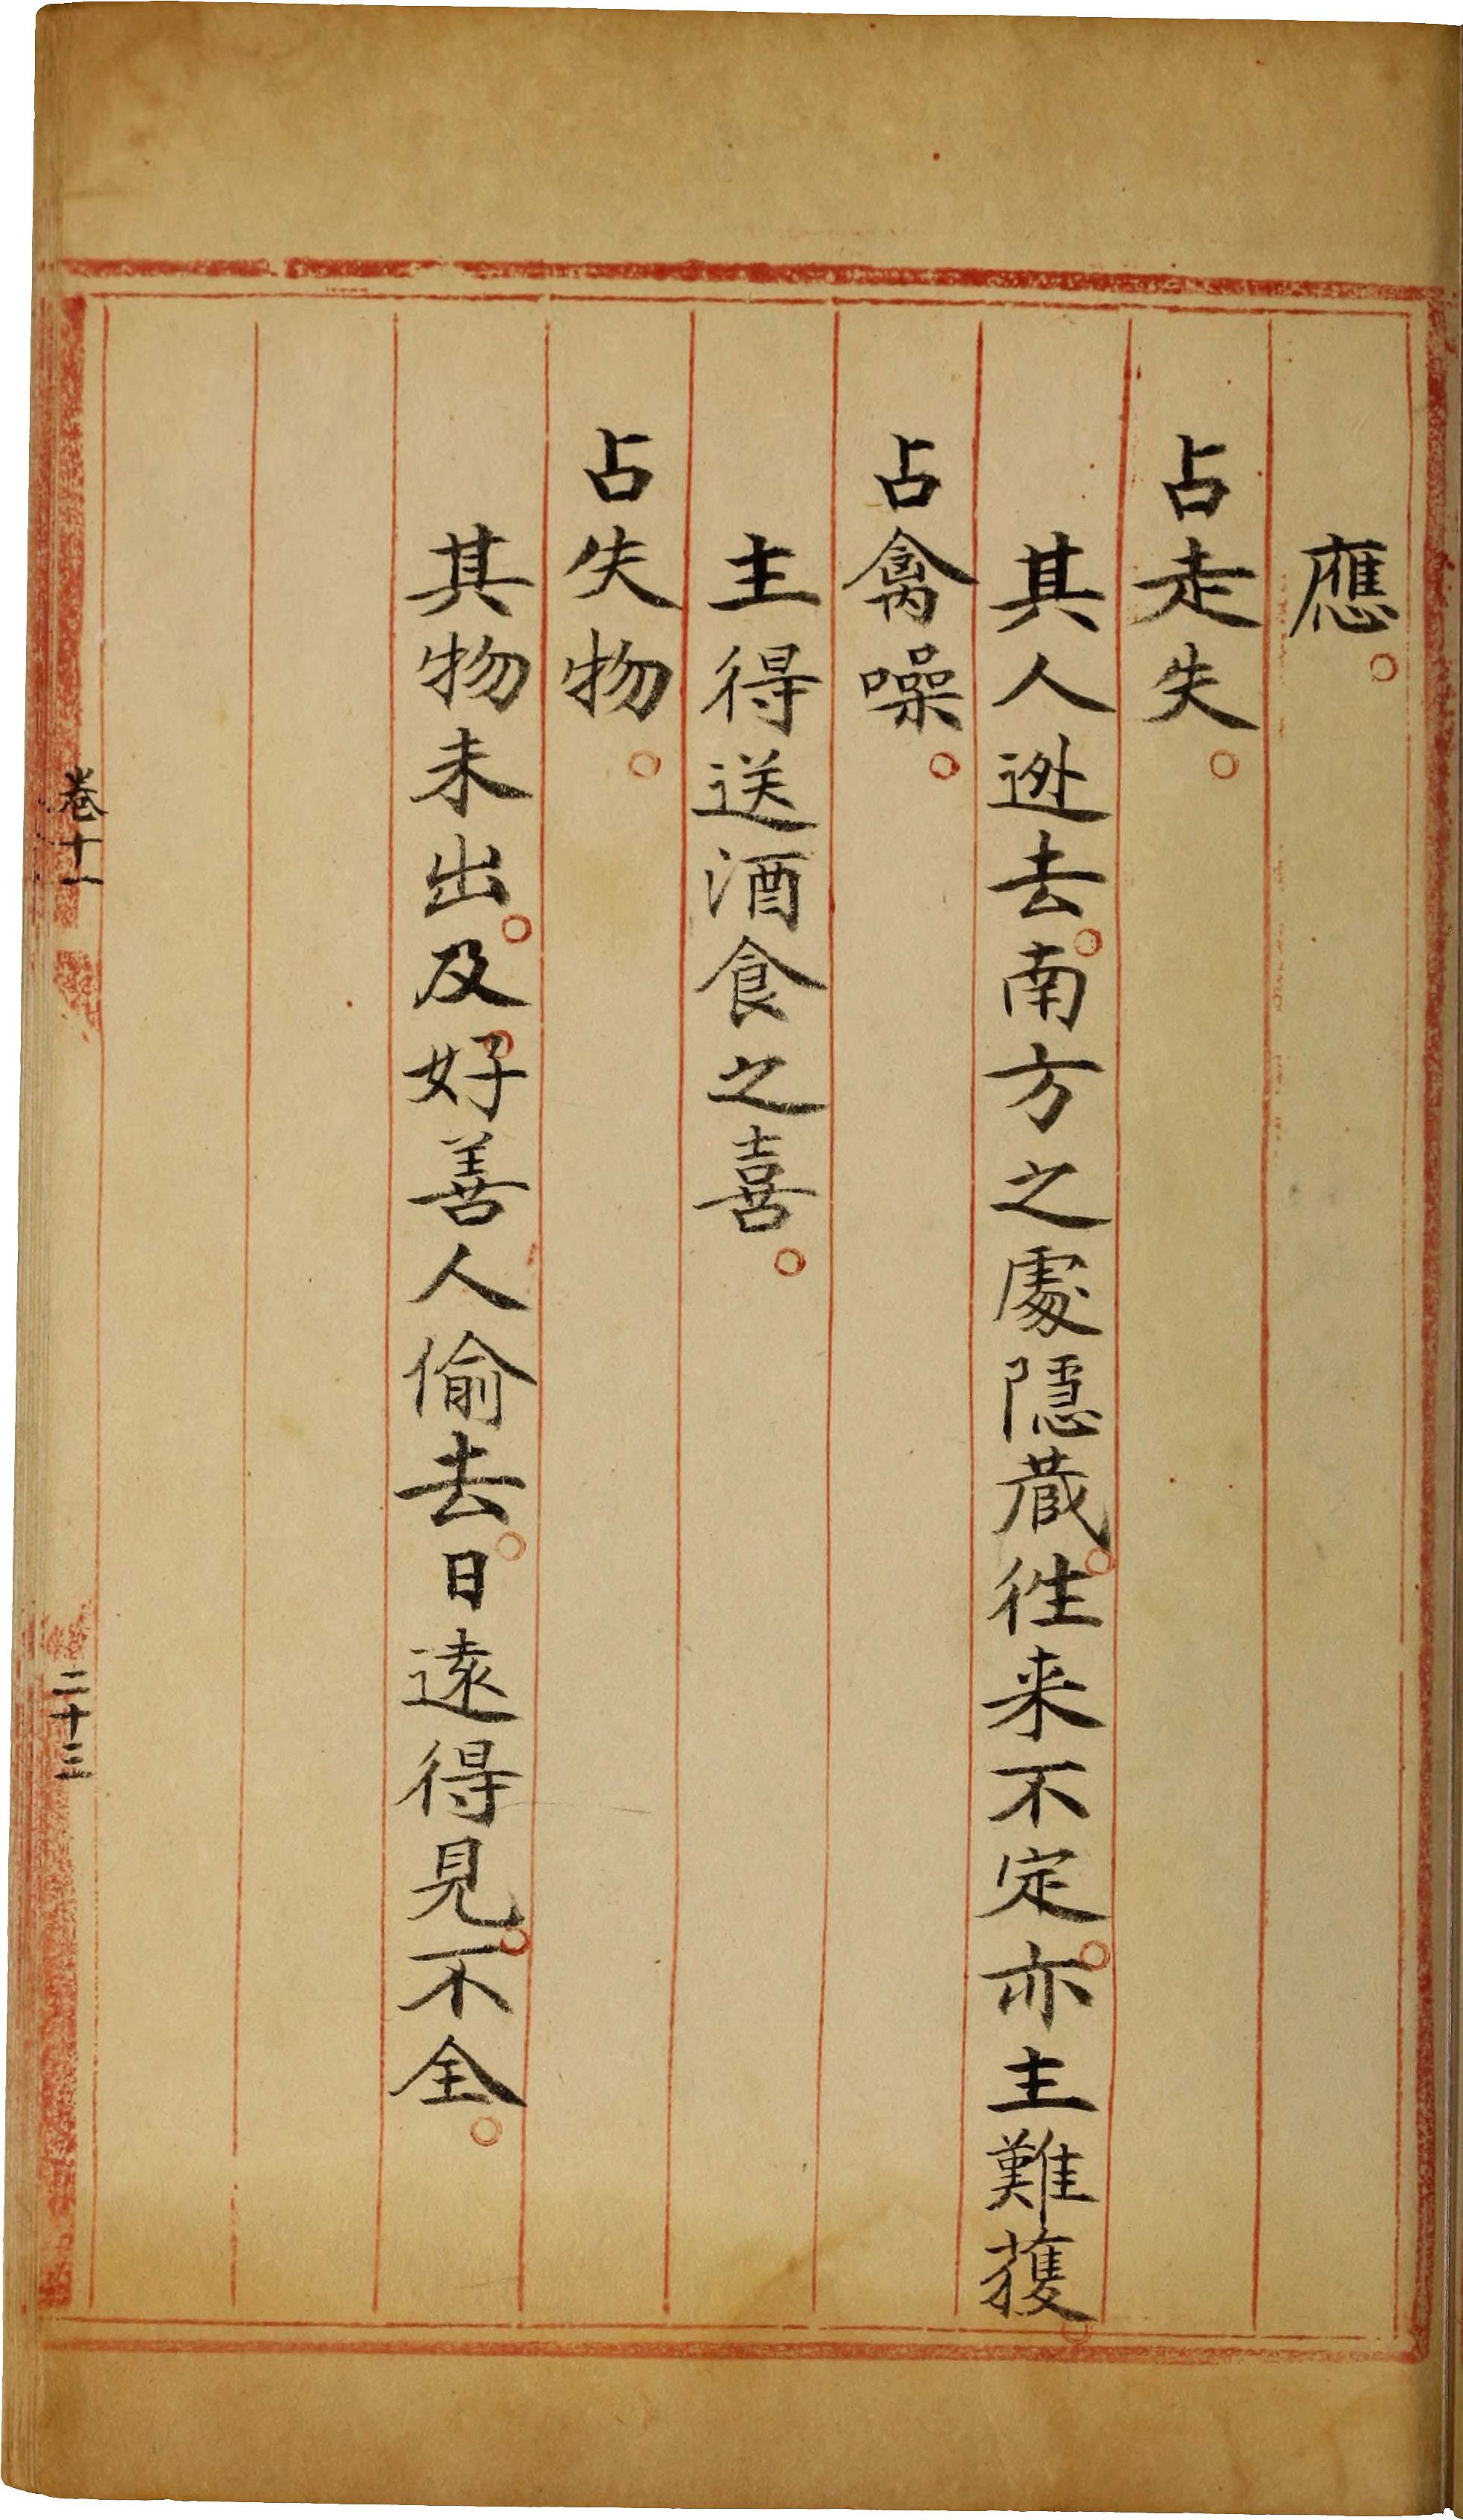 應。
占走失。
其人逃去。南方之處隱藏。徃来不定。亦主難獲。
占禽噪。
主得送酒食之喜。
占失物。
其物未出。及好善人偷去。日遠得見。不全。
卷十一
二十三